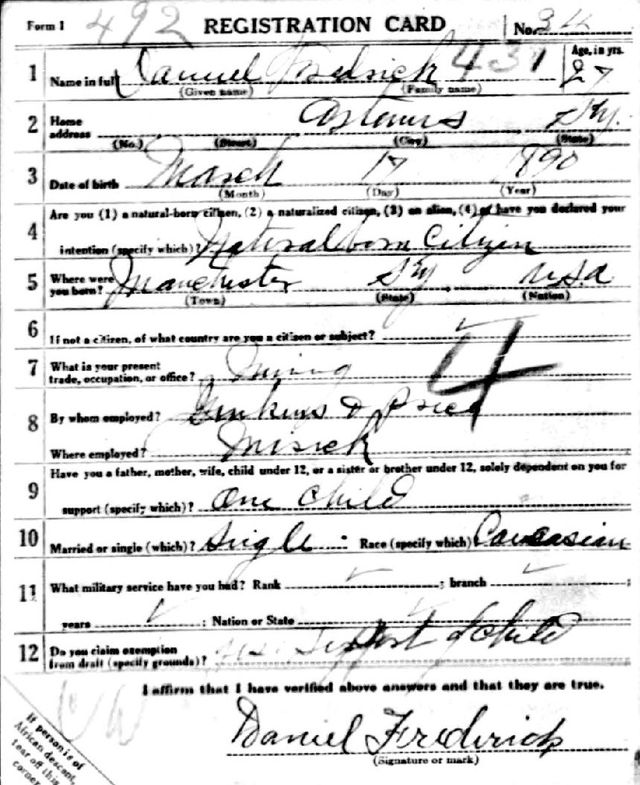 Form 1 492 REGISTRATION CARD No. 34
1 Name in full Daniel Fredrick 437 Age, in yrs. 27
(Given name) (Family name)
2 Home address Artemus Ky.
(No.) (Street) (City) (State)
3 Date of birth March 17 1890
(Month) (Day) (Year)
4 Are you (1) a natural-born citizen, (2) a naturalized citizen, (3) an alien, (4) or have you declared your
intention (specify which)? Natural born Citizen
5 Where were you born? Manchester Ky U.S.A
(Town) (State) (Nation)
6 If not a citizen, of what country are you a citizen or subject?
7 What is your present trade, occupation, or office? Mining 4
8 By whom employed? Jenkins & Price
Where employed?
9 Have you a father, mother, wife, child under 12, or a sister or brother under 12, solely dependent on you for
support (specify which)? One Child
10 Married or single (which)? Single Race (specify which) Caucasian
11 What military service have you had? Rank ; branch
years ; Nation or State
12 Do you claim exemption from draft (specify grounds)? Yes Support of Child
I affirm that I have verified above answers and that they are true.
Daniel Frederick
(Signature or mark)
If person is of
African descent,
tear off this
corner